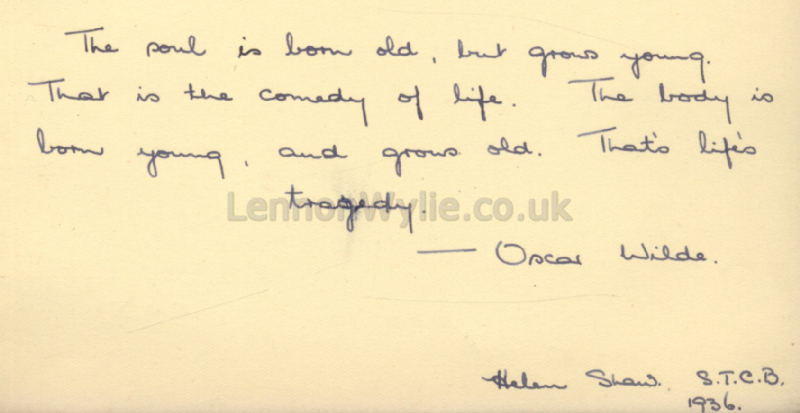 The soul is born old, but grows young.
That is the comedy of life. The body is
born young, and grows old. That's life's
tragedy.
LennonWylie.co.uk
— Oscar Wilde.
Helen Shaw. S.T.C.B.
1936.